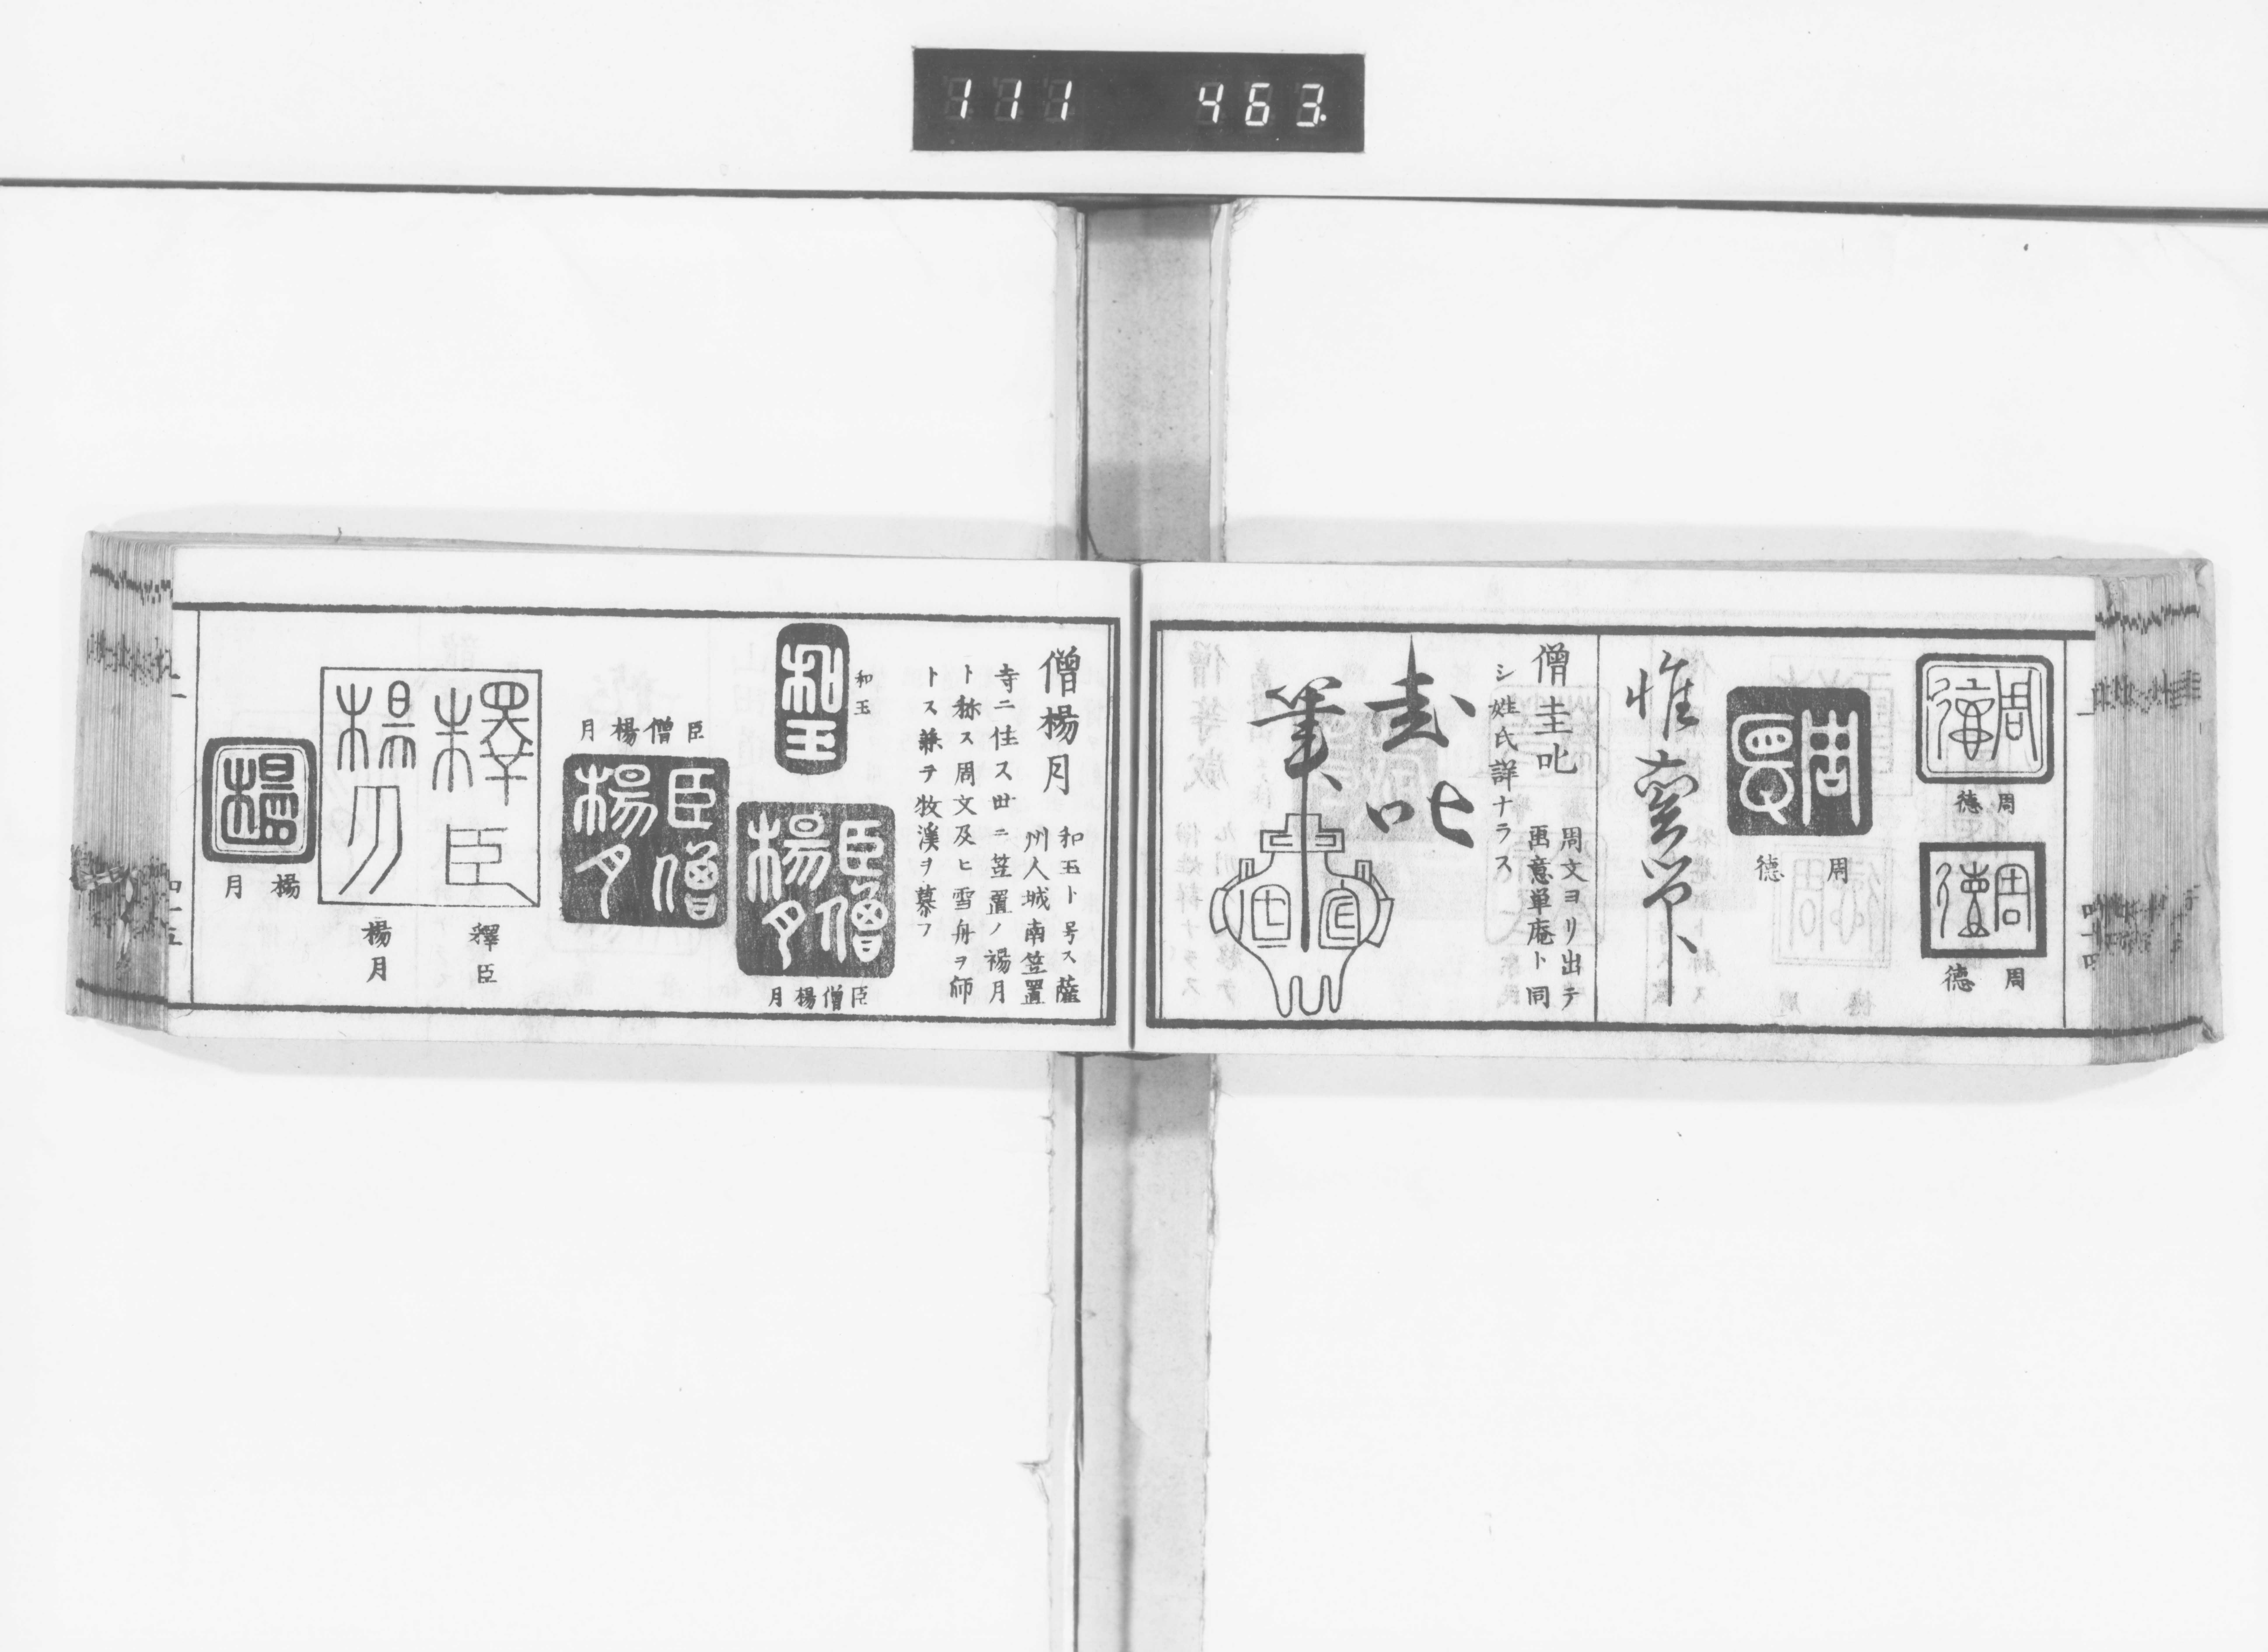 111 463.
周德
周德
周德
周德
周德
周德
惟
筆
僧圭叱
周文ヨリ出テ
画意単庵ト同
シ姓氏詳ナラス
圭叱
筆
僧楊月
和玉ト号ス薩
州人城南笠置
寺ニ住ス世ニ笠置ノ楊月
ト称ス周文及ヒ雪舟ヲ師
トス兼テ牧溪ヲ慕フ
和玉
和玉
臣僧楊月
臣僧楊月
臣僧楊月
臣僧楊月
釋臣
楊月
釋臣
楊月
楊月